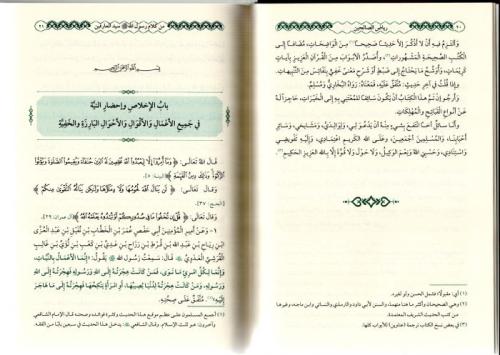 ٢٠
رياض الصالحين
وألتزم فيه أن لا أذكر إلا حديثا صحيحا من الواضحات، مضافا إلى
الكتب الصحيحة المشهورات، وأصدر الأبواب من القرآن العزيز بآيات
كريمات، وأوشح ما يحتاج إلى ضبط أو شرح معنى خفي بنفائس من التنبيهات،
وإذا قلت في آخر حديث: متفق عليه، فمعناه: رواه البخاري ومسلم.
وأرجو إن تم هذا الكتاب أن يكون سائقا للمعتني به إلى الخيرات، حاجزا له
عن أنواع القبائح والمهلكات.
وأنا سائل أخا انتفع بشيء منه أن يدعو لي، ولوالدي، ومشايخي، وسائر
أحبابنا، والمسلمين أجمعين، وعلى الله الكريم اعتمادي، وإليه تفويضي
واستنادي، وحسبي الله ونعم الوكيل، ولا حول ولا قوة إلا بالله العزيز الحكيم
(١) أي: مقبولا؛ فشمل الحسن ولو لغيره.
(٣) في بعض نسخ الكتاب ترجمة (عناوين) للأبواب كلها.
من كلام رسول الله ﷺ سيد العارفين
٢١
بسم الله الرحمن الرحيم
باب الإخلاص وإحضار النية
في جميع الأعمال والأقوال والأحوال البارزة والخفية
قال الله تعالى: ﴿وما أمروا إلا ليعبدوا الله مخلصين له الدين حنفاء ويقيموا الصلاة ويؤتوا
الزكاة وذلك دين القيمة﴾ [البينة: ٥].
وقال تعالى: ﴿لن ينال الله لحومها ولا دماؤها ولكن يناله التقوى منكم﴾
[الحج: ٣٧].
وقال تعالى: ﴿قل إن تخفوا ما في صدوركم أو تبدوه يعلمه الله﴾ [آل عمران: ٢٩].
١- وعن أمير المؤمنين أبي حفص عمر بن الخطاب بن نفيل بن عبد العزى
ابن رياح بن عبد الله بن قرط بن رزاح بن عدي بن كعب بن لؤي بن غالب
القرشي العدوي قال: سمعت رسول الله ﷺ يقول: «إنما الأعمال بالنيات،
وإنما لكل امرئ ما نوى، فمن كانت هجرته إلى الله ورسوله فهجرته إلى الله
ورسوله، ومن كانت هجرته لدنيا يصيبها، أو امرأة ينكحها فهجرته إلى ما هاجر
إليه». متفق على صحته